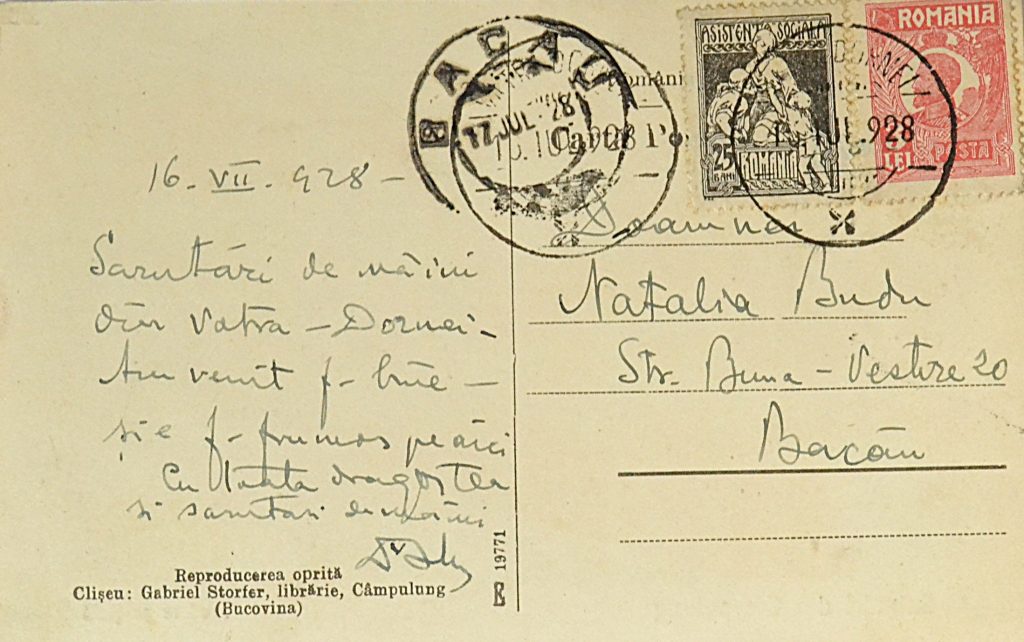 BACAU
17 JUL. 928
ASISTENTA SOCIALA
25
BANI
ROMANIA
ROMANIA
LEI
POSTA
IUL.928
16. VII. 928 –
Sarutări de mâini
din Vatra – Dornei –
Am venit f. bine –
și e f. frumos pe aici
Cu toata dragostea
si sarutari de mâini
Doamnei
Natalia Budu
Str. Buna – Vestire 20
Bacău
Reproducerea oprită
Clișeu: Gabriel Storfer, librărie, Câmpulung
(Bucovina)
19771